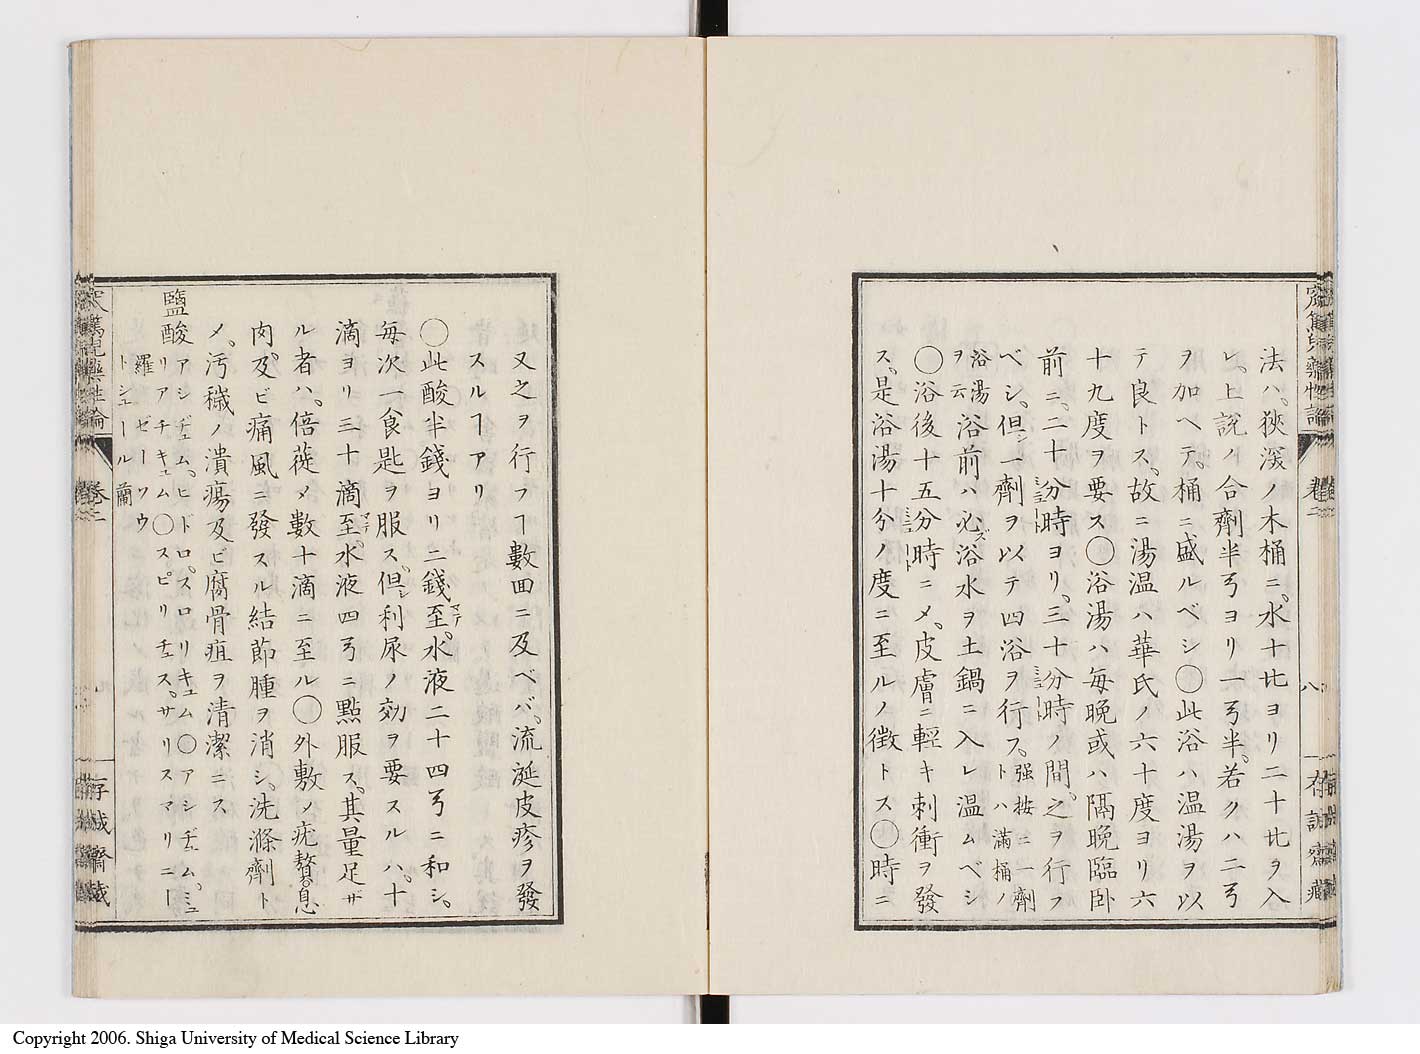 法ハ狹深ノ木桶ニ水十廿ヨリ二十廿ヲ入
レ上説ノ合劑半丐ヨリ一丐半若クハ二丐
ヲ加ヘテ桶ニ盛ルベシ〇此浴ハ温湯ヲ以
テ良トス故ニ湯温ハ華氏ノ六十度ヨリ六
十九度ヲ要ス〇浴湯ハ毎晩或ハ隔晩臨卧
前ニ二十分時ヨリ三十分時ノ間之ヲ行フ
ベシ但一劑ヲ以テ四浴ヲ行フ強按ニ一劑トハ滿桶ノ
浴湯ヲ云浴前ハ必ズ浴水ヲ土鍋ニ入レ温ムベシ
〇浴後十五分時ニメ皮膚ニ輕キ刺衝ヲ發
ス是浴湯十分ノ度ニ至ルノ徴トス〇時ニ
卷二
八
又之ヲ行フヿ數回ニ及ベバ流涎皮疹ヲ發
スルヿアリ
〇此酸半錢ヨリ二錢至マデ水液二十四丐ニ和シ
毎次一食匙ヲ服ス但シ利尿ノ効ヲ要スルハ十
滴ヨリ三十滴至マデ水液四丐ニ點服ス其量足ザ
ル者ハ倍蓰メ數十滴ニ至ル〇外敷メ疣贅息
肉及ビ痛風ニ發スル結節腫ヲ消シ洗滌劑ト
メ汚穢ノ潰瘍及ビ腐骨疽ヲ清潔ニス
鹽酸アシヂュム、ヒドロ、スロリキュム〇アシヂュム、ミュ
リアチキュム〇スピリチュス、サリスマリニー
羅 ゼーソウ
トシュール 蘭
卷二
存誠齋藏
Copyright 2006. Shiga University of Medical Science Library